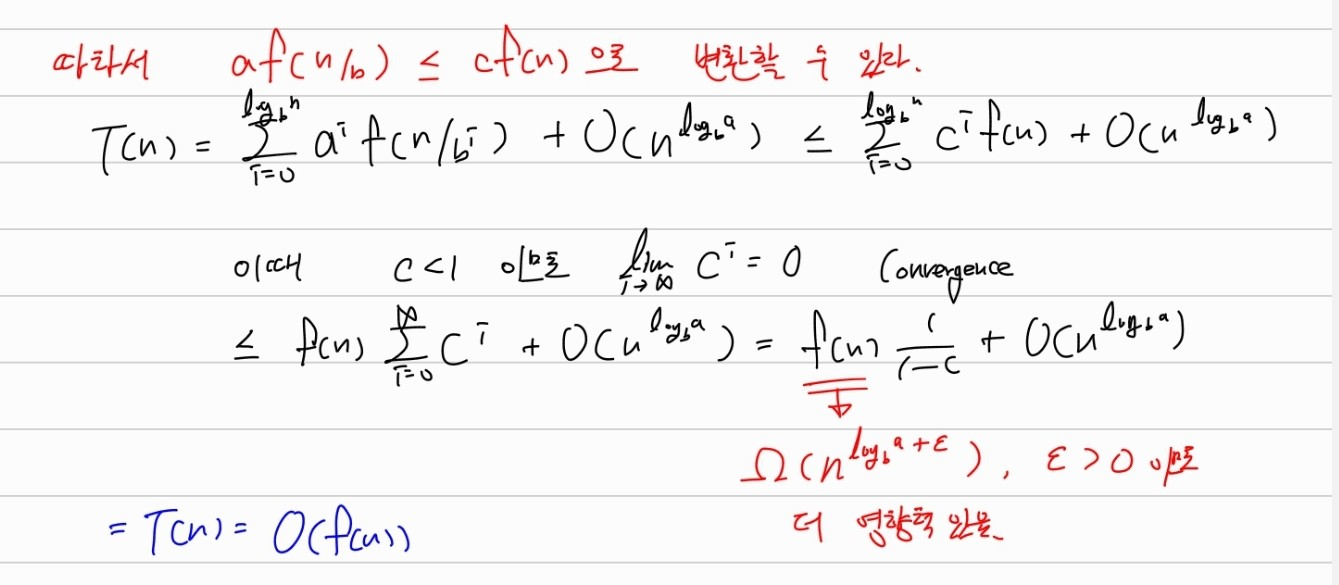 따라서 af(n/b) ≤ cf(n) 으로 변환할 수 있다.
T(n) = ∑_{i=0}^{log_b n} a^i f(n/b^i) + O(n^{log_b a}) ≤ ∑_{i=0}^{log_b n} c^i f(n) + O(n^{log_b a})
이때 c<1 이므로 lim_{i→∞} c^i = 0 Convergence
≤ f(n) ∑_{i=0}^{∞} c^i + O(n^{log_b a}) = f(n) 1/(1-c) + O(n^{log_b a})
Ω(n^{log_b a+ε}), ε>0 이므로
더 영향력 있음.
= T(n) = O(f(n))